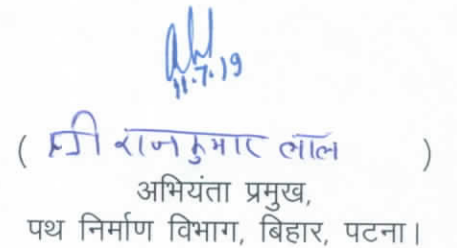 11.7.19
( श्री राजकुमार लाल )
अभियंता प्रमुख,
पथ निर्माण विभाग, बिहार, पटना।